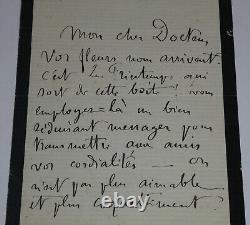 Mon cher Docteur,
vos fleurs nous arrivent.
c'est le Printemps qui
sort de cette boîte ! vous
employez là un bien
séduisant messager pour
transmettre aux amis
vos cordialités — on
n'est pas plus aimable
et plus